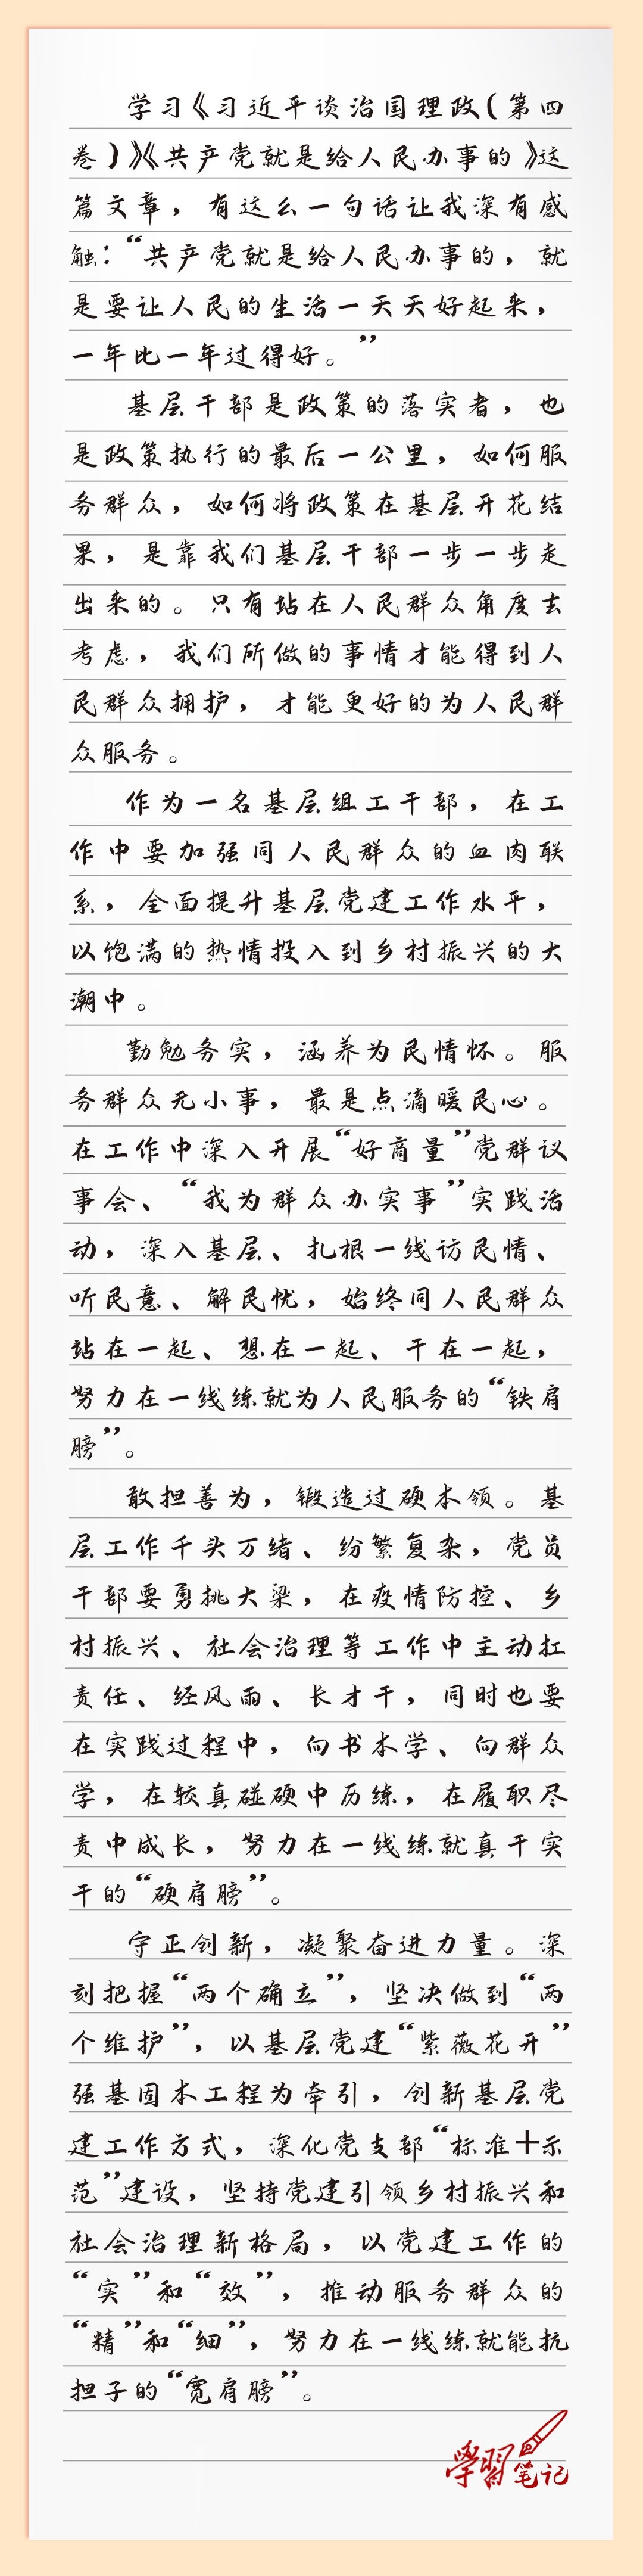 学习《习近平谈治国理政(第四
卷)》《共产党就是给人民办事的》这
篇文章，有这么一句话让我深有感
触：“共产党就是给人民办事的，就
是要让人民的生活一天天好起来，
一年比一年过得好。”
基层干部是政策的落实者，也
是政策执行的最后一公里，如何服
务群众，如何将政策在基层开花结
果，是靠我们基层干部一步一步走
出来的。只有站在人民群众角度去
考虑，我们所做的事情才能得到人
民群众拥护，才能更好的为人民群
众服务。
作为一名基层组工干部，在工
作中要加强同人民群众的血肉联
系，全面提升基层党建工作水平，
以饱满的热情投入到乡村振兴的大
潮中。
勤勉务实，涵养为民情怀。服
务群众无小事，最是点滴暖民心。
在工作中深入开展“好商量”党群议
事会、“我为群众办实事”实践活
动，深入基层、扎根一线访民情、
听民意、解民忧，始终同人民群众
站在一起、想在一起、干在一起，
努力在一线练就为人民服务的“铁肩
膀”。
敢担善为，锻造过硬本领。基
层工作千头万绪、纷繁复杂，党员
干部要勇挑大梁，在疫情防控、乡
村振兴、社会治理等工作中主动扛
责任、经风雨、长才干，同时也要
在实践过程中，向书本学、向群众
学，在较真碰硬中历练，在履职尽
责中成长，努力在一线练就真干实
干的“硬肩膀”。
守正创新，凝聚奋进力量。深
刻把握“两个确立”，坚决做到“两
个维护”，以基层党建“紫薇花开”
强基固本工程为牵引，创新基层党
建工作方式，深化党支部“标准+示
范”建设，坚持党建引领乡村振兴和
社会治理新格局，以党建工作的
“实”和“效”，推动服务群众的
“精”和“细”，努力在一线练就能抗
担子的“宽肩膀”。
學習笔记